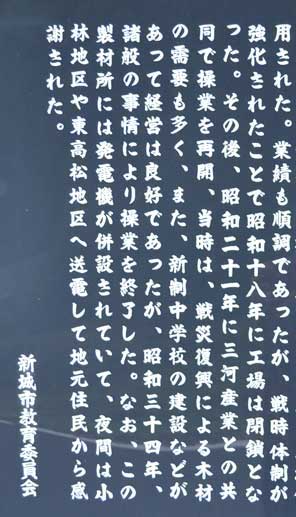 用された。業績も順調であったが、戦時体制が
強化されたことで昭和十八年に工場は閉鎖とな
った。その後、昭和二十一年に三河産業との共
同で操業を再開、当時は、戦災復興による木材
の需要も多く、また、新制中学校の建設などが
あって経営は良好であったが、昭和三十四年、
諸般の事情により操業を終了した。なお、この
製材所には発電機が併設されていて、夜間は小
林地区や東高松地区へ送電して地元住民から感
謝された。
新城市教育委員会